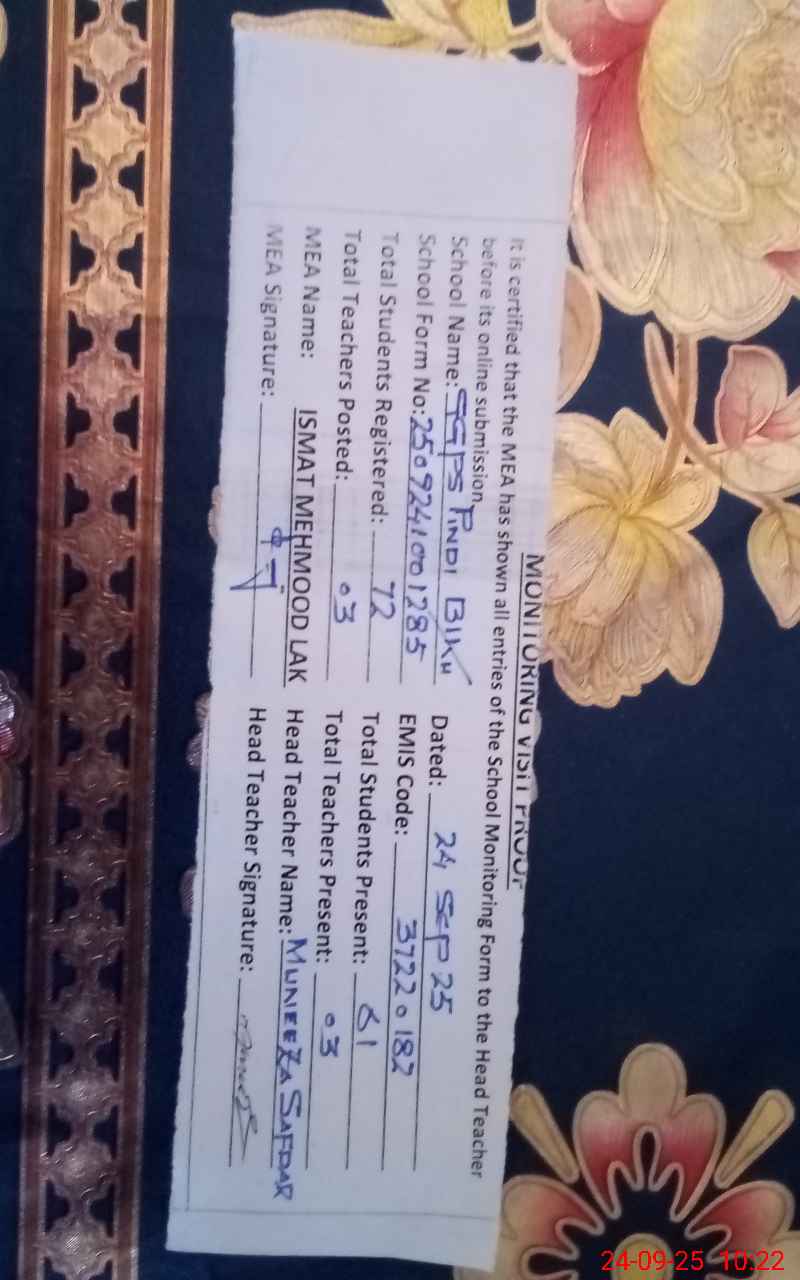 MONITORING VISIT PROOF
It is certified that the MEA has shown all entries of the School Monitoring Form to the Head Teacher
before its online submission
School Name: GGPS PINDI BIKH Dated: 24 SEP 25
School Form No: 2509241001285 EMIS Code: 37220182
Total Students Registered: 72 Total Students Present: 61
Total Teachers Posted: 03 Total Teachers Present: 03
MEA Name: ISMAT MEHMOOD LAK Head Teacher Name: MUNEEZA SAFDAR
MEA Signature: Head Teacher Signature:
24-09-25 10:22